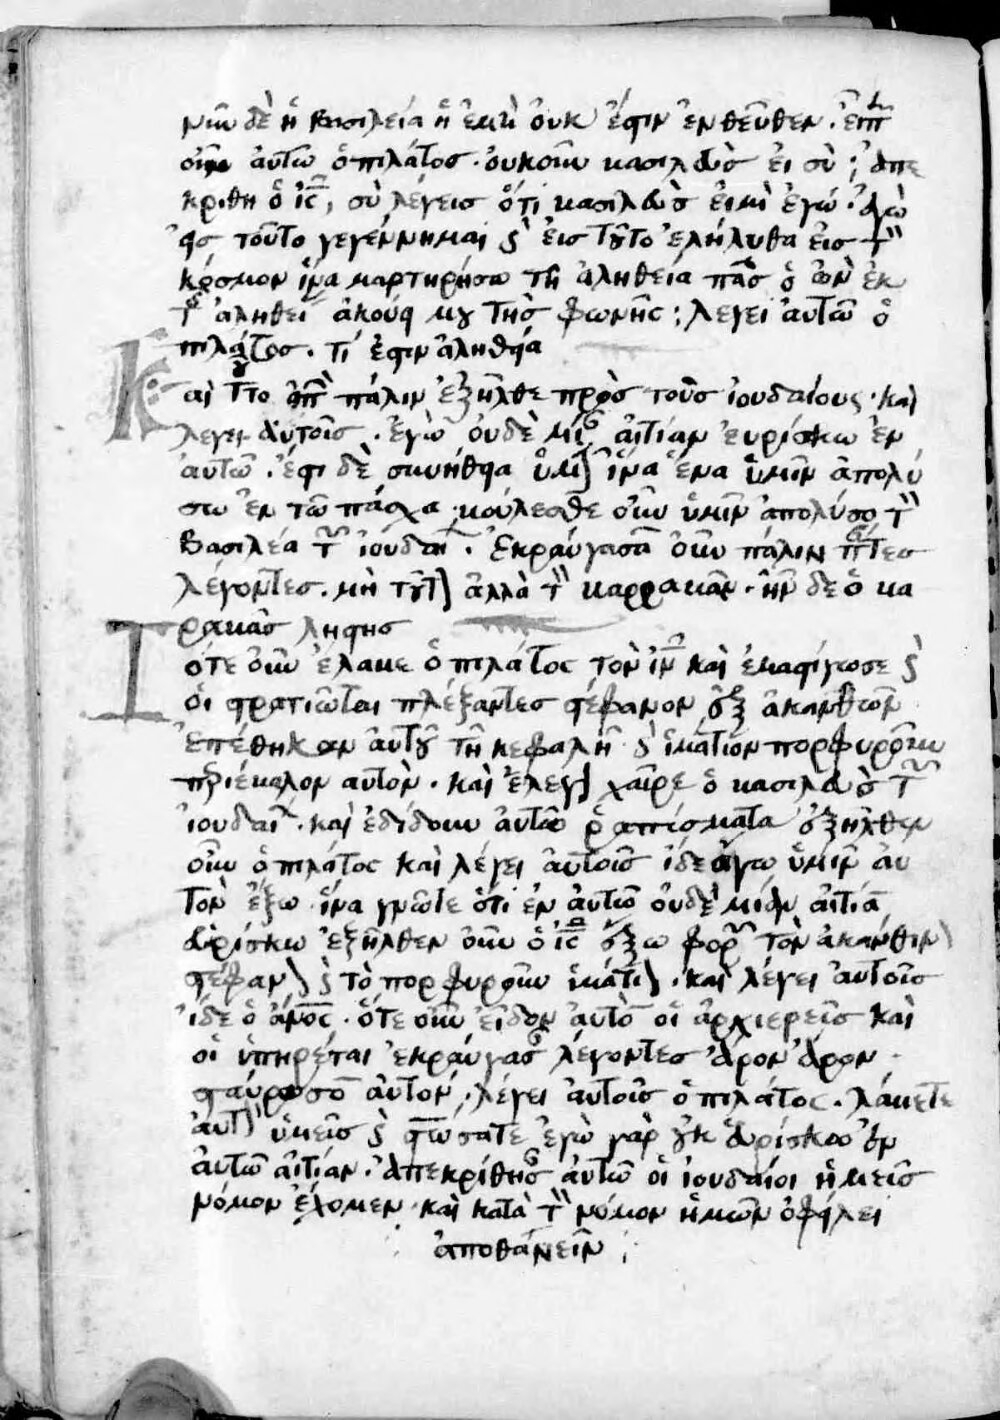 νῦν δὲ ἡ βασιλεία ἡ ἐμὴ οὐκ ἔστιν ἐντεῦθεν. εἶπ
οὖν αὐτῶ ὁ πιλάτος. οὐκοῦν βασιλεὺς εἶ σὺ; ἀπε
κρίθη ὁ ις, σὺ λέγεις ὅτι βασιλεὺς εἰμὶ ἐγώ. ἐγὼ
εἰς τοῦτο γεγέννημαι κ εἰς τοῦτο ἐλήλυθα εἰς τὸν
κόσμον ἵνα μαρτηρήσω τῆ ἀληθεία πᾶς ὁ ὢν ἐκ
τῆς ἀληθεί ἀκούει μου τῆς φωνῆς; λέγει αὐτῶ ὁ
πιλάτος. τί ἐστιν ἀλήθεια
Και τοῦτο εἰπ πάλιν ἐξῆλθε πρὸς τοὺς ἰουδαίους. καὶ
λέγει αὐτοῖς. ἐγὼ οὐδὲ μίαν αἰτίαν εὑρίσκω ἐν
αὐτῶ. ἔστι δὲ συνήθεια ὑμῖν ἵνα ἕνα ὑμῖν ἀπολύ
σω ἐν τῶ πάσχα βούλεσθε οὖν ὑμῖν ἀπολύσο τὸν
Βασιλέα τῶν ἰουδαί. Ἐκραύγασαν οὖν πάλιν πάντες
λέγοντες. μὴ τοῦτον ἀλλὰ τὸν βαρραβᾶν. ἦν δὲ ὁ βα
ραβᾶς ληστής
Τότε οὖν ἔλαβε ὁ πιλάτος τὸν ιν καὶ ἐμαστίγωσε κ
οἱ στρατιῶται πλέξαντες στέφανον ἐξ ἀκανθῶν
ἐπέθηκαν αὐτοῦ τῆ κεφαλῆ κ ἱμάτιον πορφυροῦν
περιέβαλον αὐτὸν. καὶ ἔλεγον χαῖρε ὁ βασιλεὺς τῶν
ἰουδαί. καὶ ἐδίδουν αὐτῶ ῥαπίσματα ἐξῆλθεν
οὖν ὁ πιλάτος καὶ λέγει αὐτοῖς ἴδε ἄγω ὑμῖν αὐ
τὸν ἔξω ἵνα γνῶτε ὅτι ἐν αὐτῶ οὐδὲ μίαν αἰτίαν
εὑρίσκω ἐξῆλθεν οὖν ὁ ις ἔξω φορῶν τὸν ἀκάνθινον
στέφανον κ τὸ πορφυροῦν ἱμάτιον. καὶ λέγει αὐτοῖς
ἴδε ὁ ανος. ὅτε οὖν εἶδον αὐτὸν οἱ ἀρχιερεῖς καὶ
οἱ ὑπηρέται ἐκραύγασαν λέγοντες ἆρον ἆρον
σταύρωσον αὐτόν. λέγει αὐτοῖς ὁ πιλάτος. λάβετε
αὐτὸν ὑμεῖς κ στρώσατε ἐγὼ γὰρ οὐκ εὑρίσκω ἐν
αὐτῶ αἰτίαν. ἀπεκρίθησαν αὐτῶ οἱ ἰουδαίοι ἡμεῖς
νόμον ἔχομεν καὶ κατὰ τὸν νόμον ἡμῶν ὀφείλει
ἀποθανεῖν